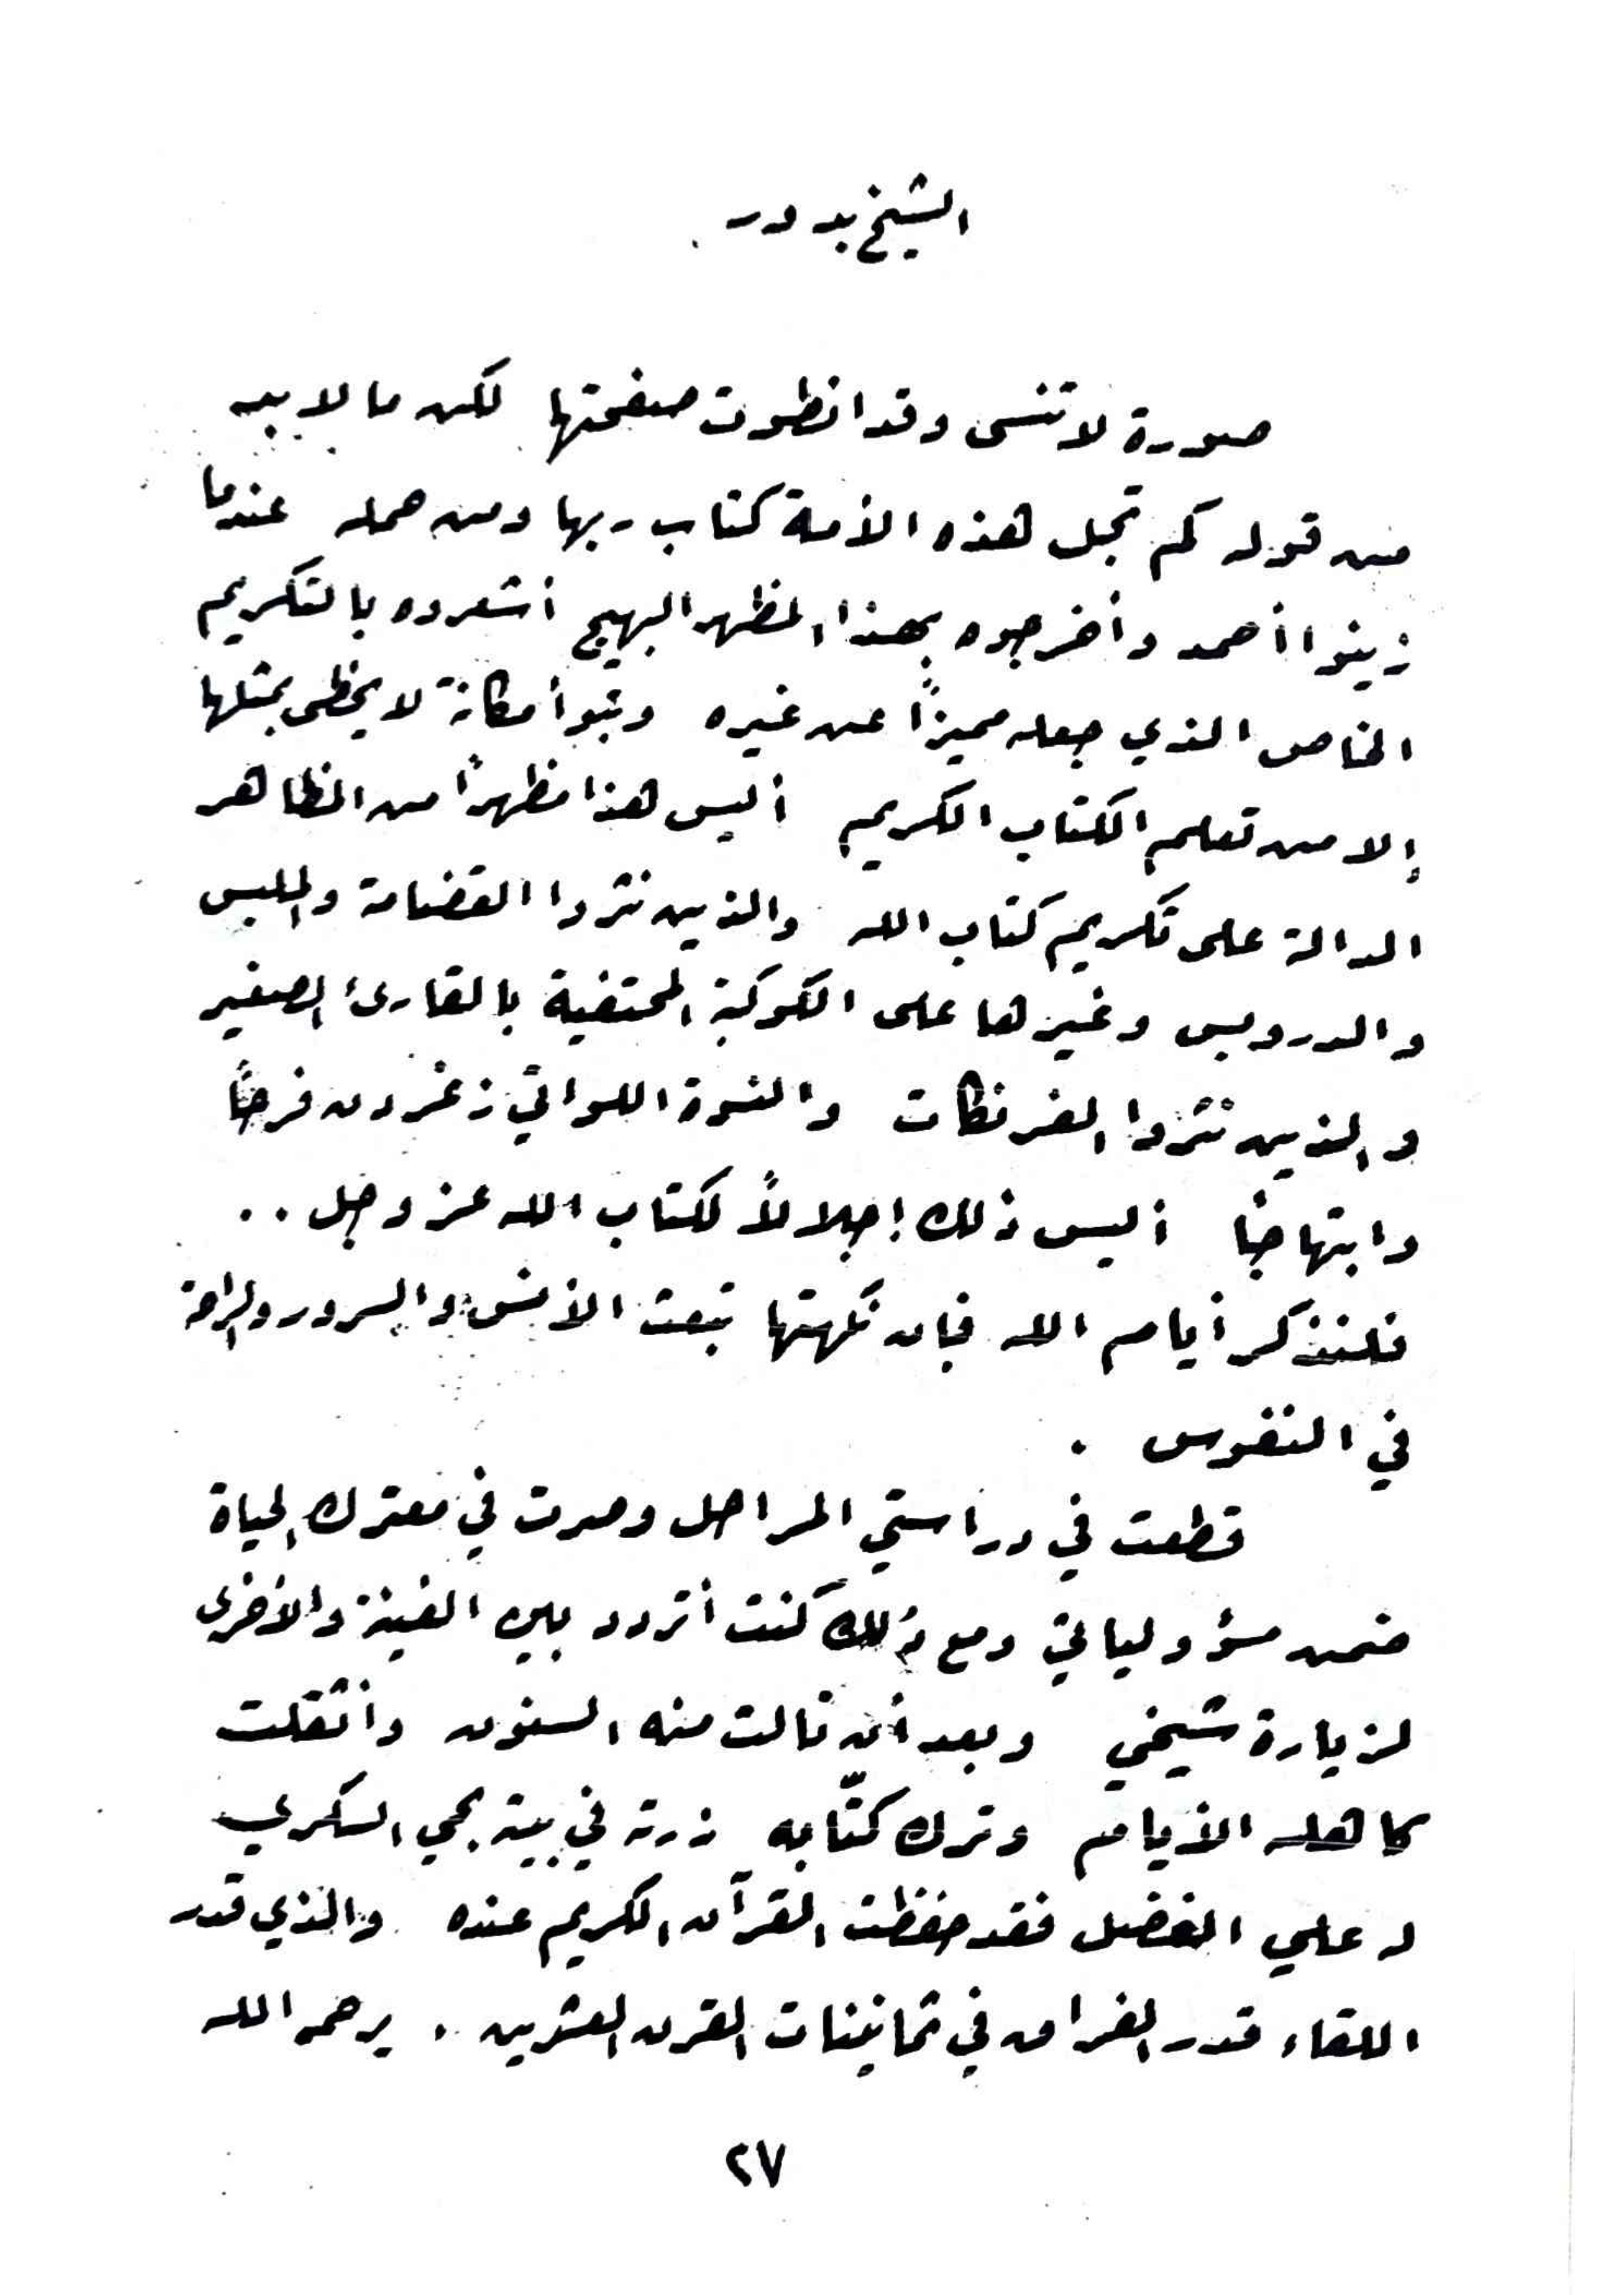 الشيخ بدور .
صورة لا تنسى وقد انطوت صفحتها لكن ما لا بد
من قوله كم تجل هذه الأمة كتاب ربها ومن حمله عندما
زينوا أحمد وأخرجوه بهذا المظهر البهيج أشعروه بالتكريم
الخاص الذي جعله مميزاً عن غيره وتبوأ مكانة لا يحظى بمثلها
إلا من تعلم الكتاب الكريم أليس هذا مظهراً من المظاهر
الدالة على تكريم كتاب الله والذين نثروا القضامة والملبس
والدروبس وغيرها على الكوكبة المحتفية بالقارئ الصغير
والذين نثروا الفرنكات والنسوة اللواتي زغردن فرحاً
وابتهاجاً أليس ذلك إجلالاً لكتاب الله عز وجل ..
فلنتذكر أيام الله فإن نكهتها تبعث الأنس والسرور والراحة
في النفوس .
قطعت في دراستي المراحل وصرت في معترك الحياة
ضمن مسؤولياتي ومع ذلك كنت أتردد بين الفينة والأخرى
لزيارة شيخي وبعد أن نالت منه السنون وأثقلت
كاهله الأيام وترك كتّابه زرته في بيته بحي السكري
له علي الفضل فقد حفظت القرآن الكريم عنده والذي قدر
اللقاء قدر الفراق في ثمانينات القرن العشرين . يرحمه الله
٢٧